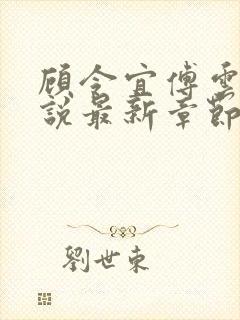 顾令宜傅雲
說最新章節
劉世東